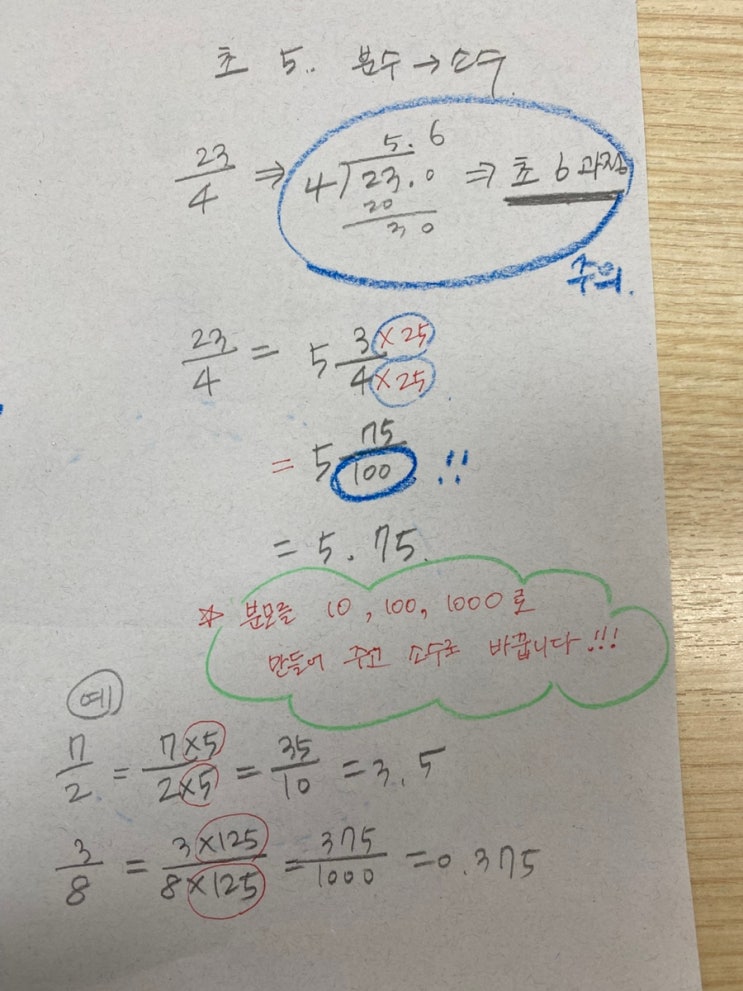 초 5. 분수 → 소수
23/4 ⇒ 4)23.0 5.6 ⇒ 초 6 과정
20
30
주의.
23/4 = 5 3×25/4×25
= 5 75/100 !!
= 5.75
☆ 분모를 10, 100, 1000로
만들어 주고 소수로 바꿉니다!!!
예
7/2 = 7×5/2×5 = 35/10 = 3.5
3/8 = 3×125/8×125 = 375/1000 = 0.375